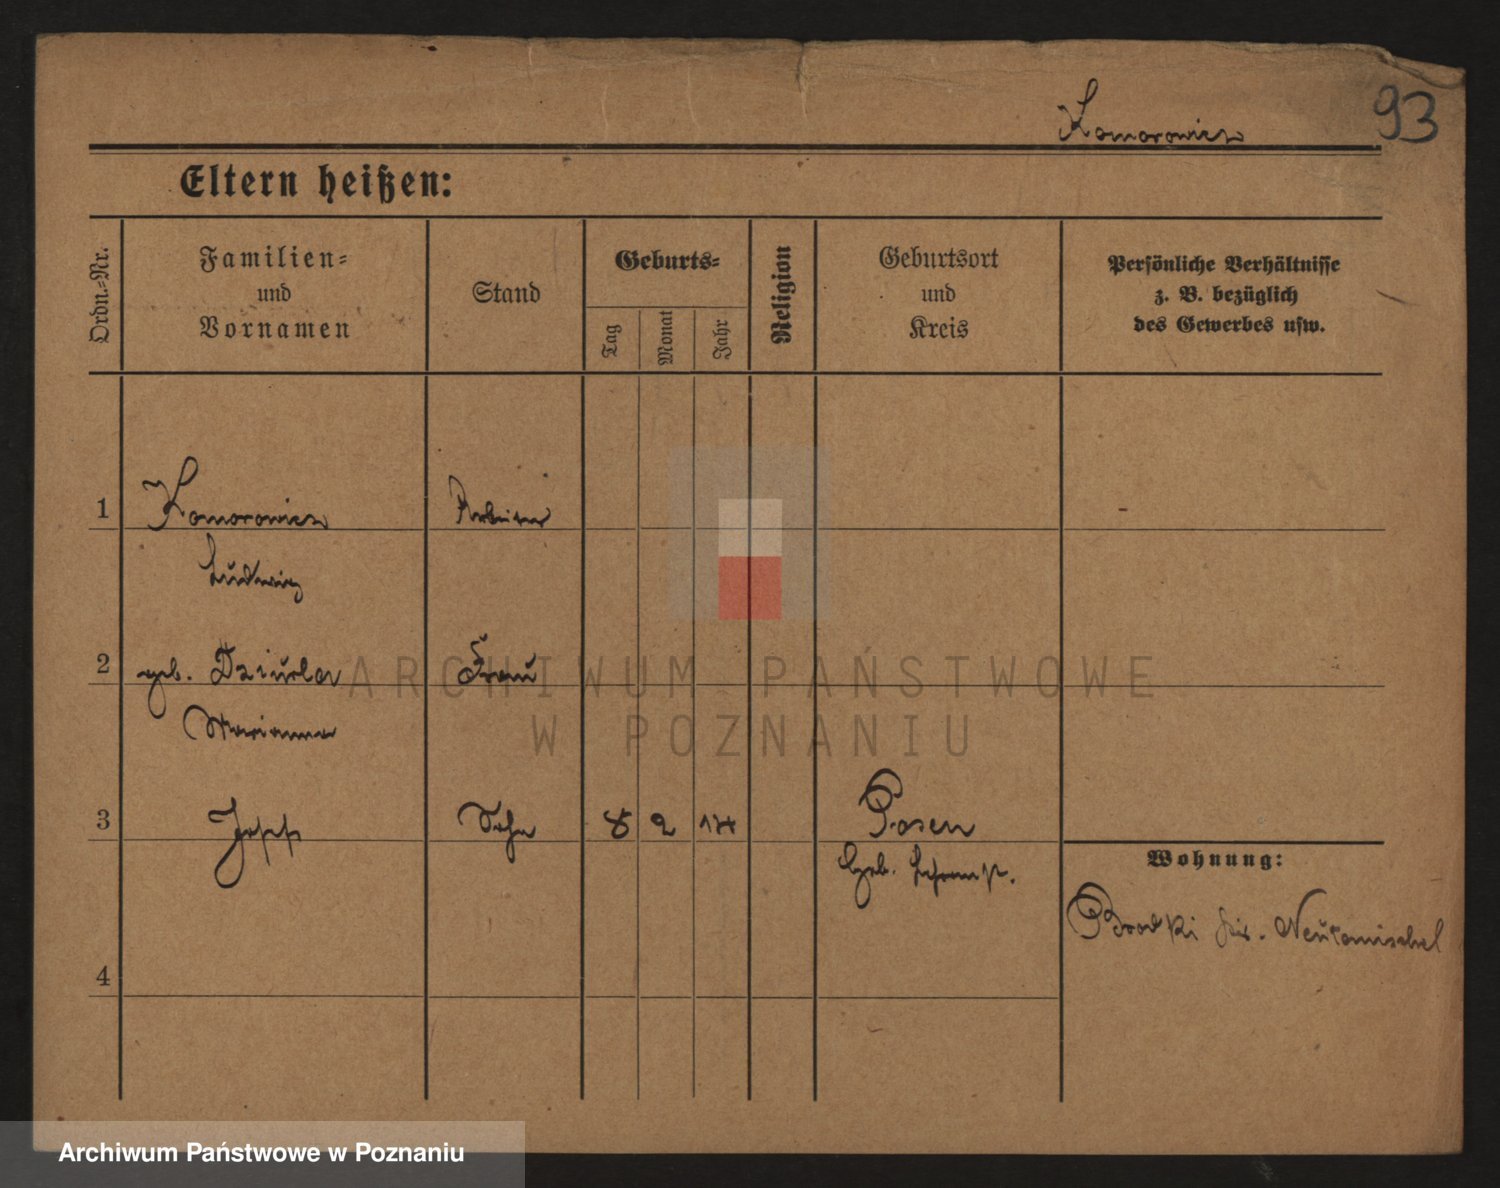 Komorowicz
93
Eltern heißen:
Ordn.-Nr.
Familien-
und
Vornamen
Stand
Geburts-
Tag
Monat
Jahr
Religion
Geburtsort
und
Kreis
Persönliche Verhältnisse
z. B. bezüglich
des Gewerbes usw.
1
Komorowicz
Ludwig
2
geb. Dziurla
Frau
Marianna
ARCHIWUM PAŃSTWOWE
W POZNANIU
3
Josef
Sohn
8
2
14
Posen
Geb.
Wohnung:
4
Archiwum Państwowe w Poznaniu